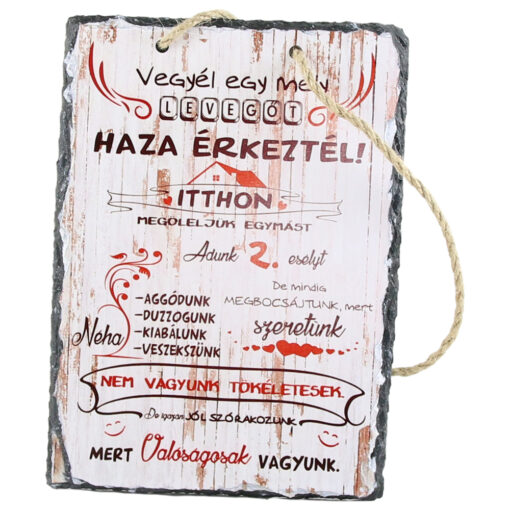 Vegyél egy mély
LEVEGŐT
HAZA ÉRKEZTÉL!
ITTHON
MEGÖLELJÜK EGYMÁST
Adunk 2. esélyt
Néha
-AGGÓDUNK
-DUZZOGUNK
-KIABÁLUNK
-VESZEKSZÜNK
De mindig
MEGBOCSÁJTUNK, mert
szeretünk
NEM VAGYUNK TÖKÉLETESEK.
De igazán JÓL SZÓRAKOZUNK
MERT Valóságosak VAGYUNK.